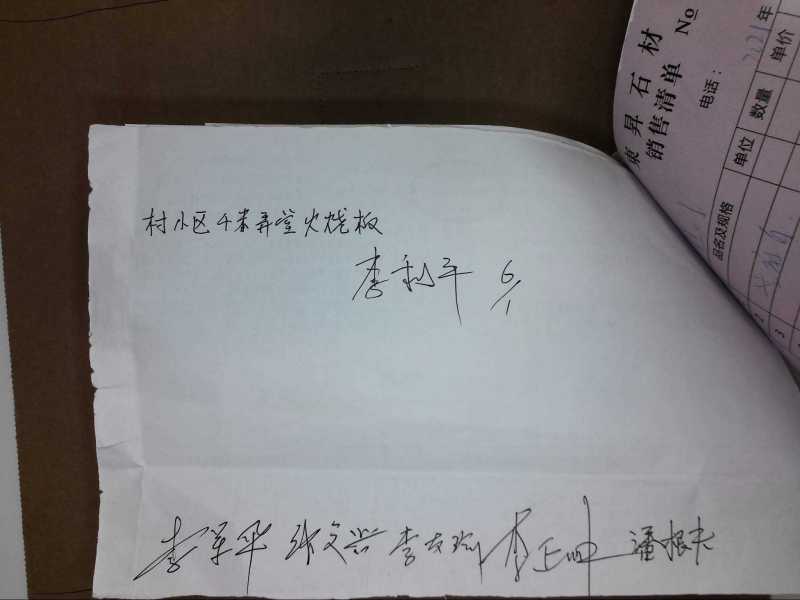 村小区千米弄堂火烧板
李利平 6/1
李军华 张文兴 李友 李正坤 潘根夫
東昇石材
销售清单 No
电话：
2021年
品名及规格 单位 数量 单价
2
3